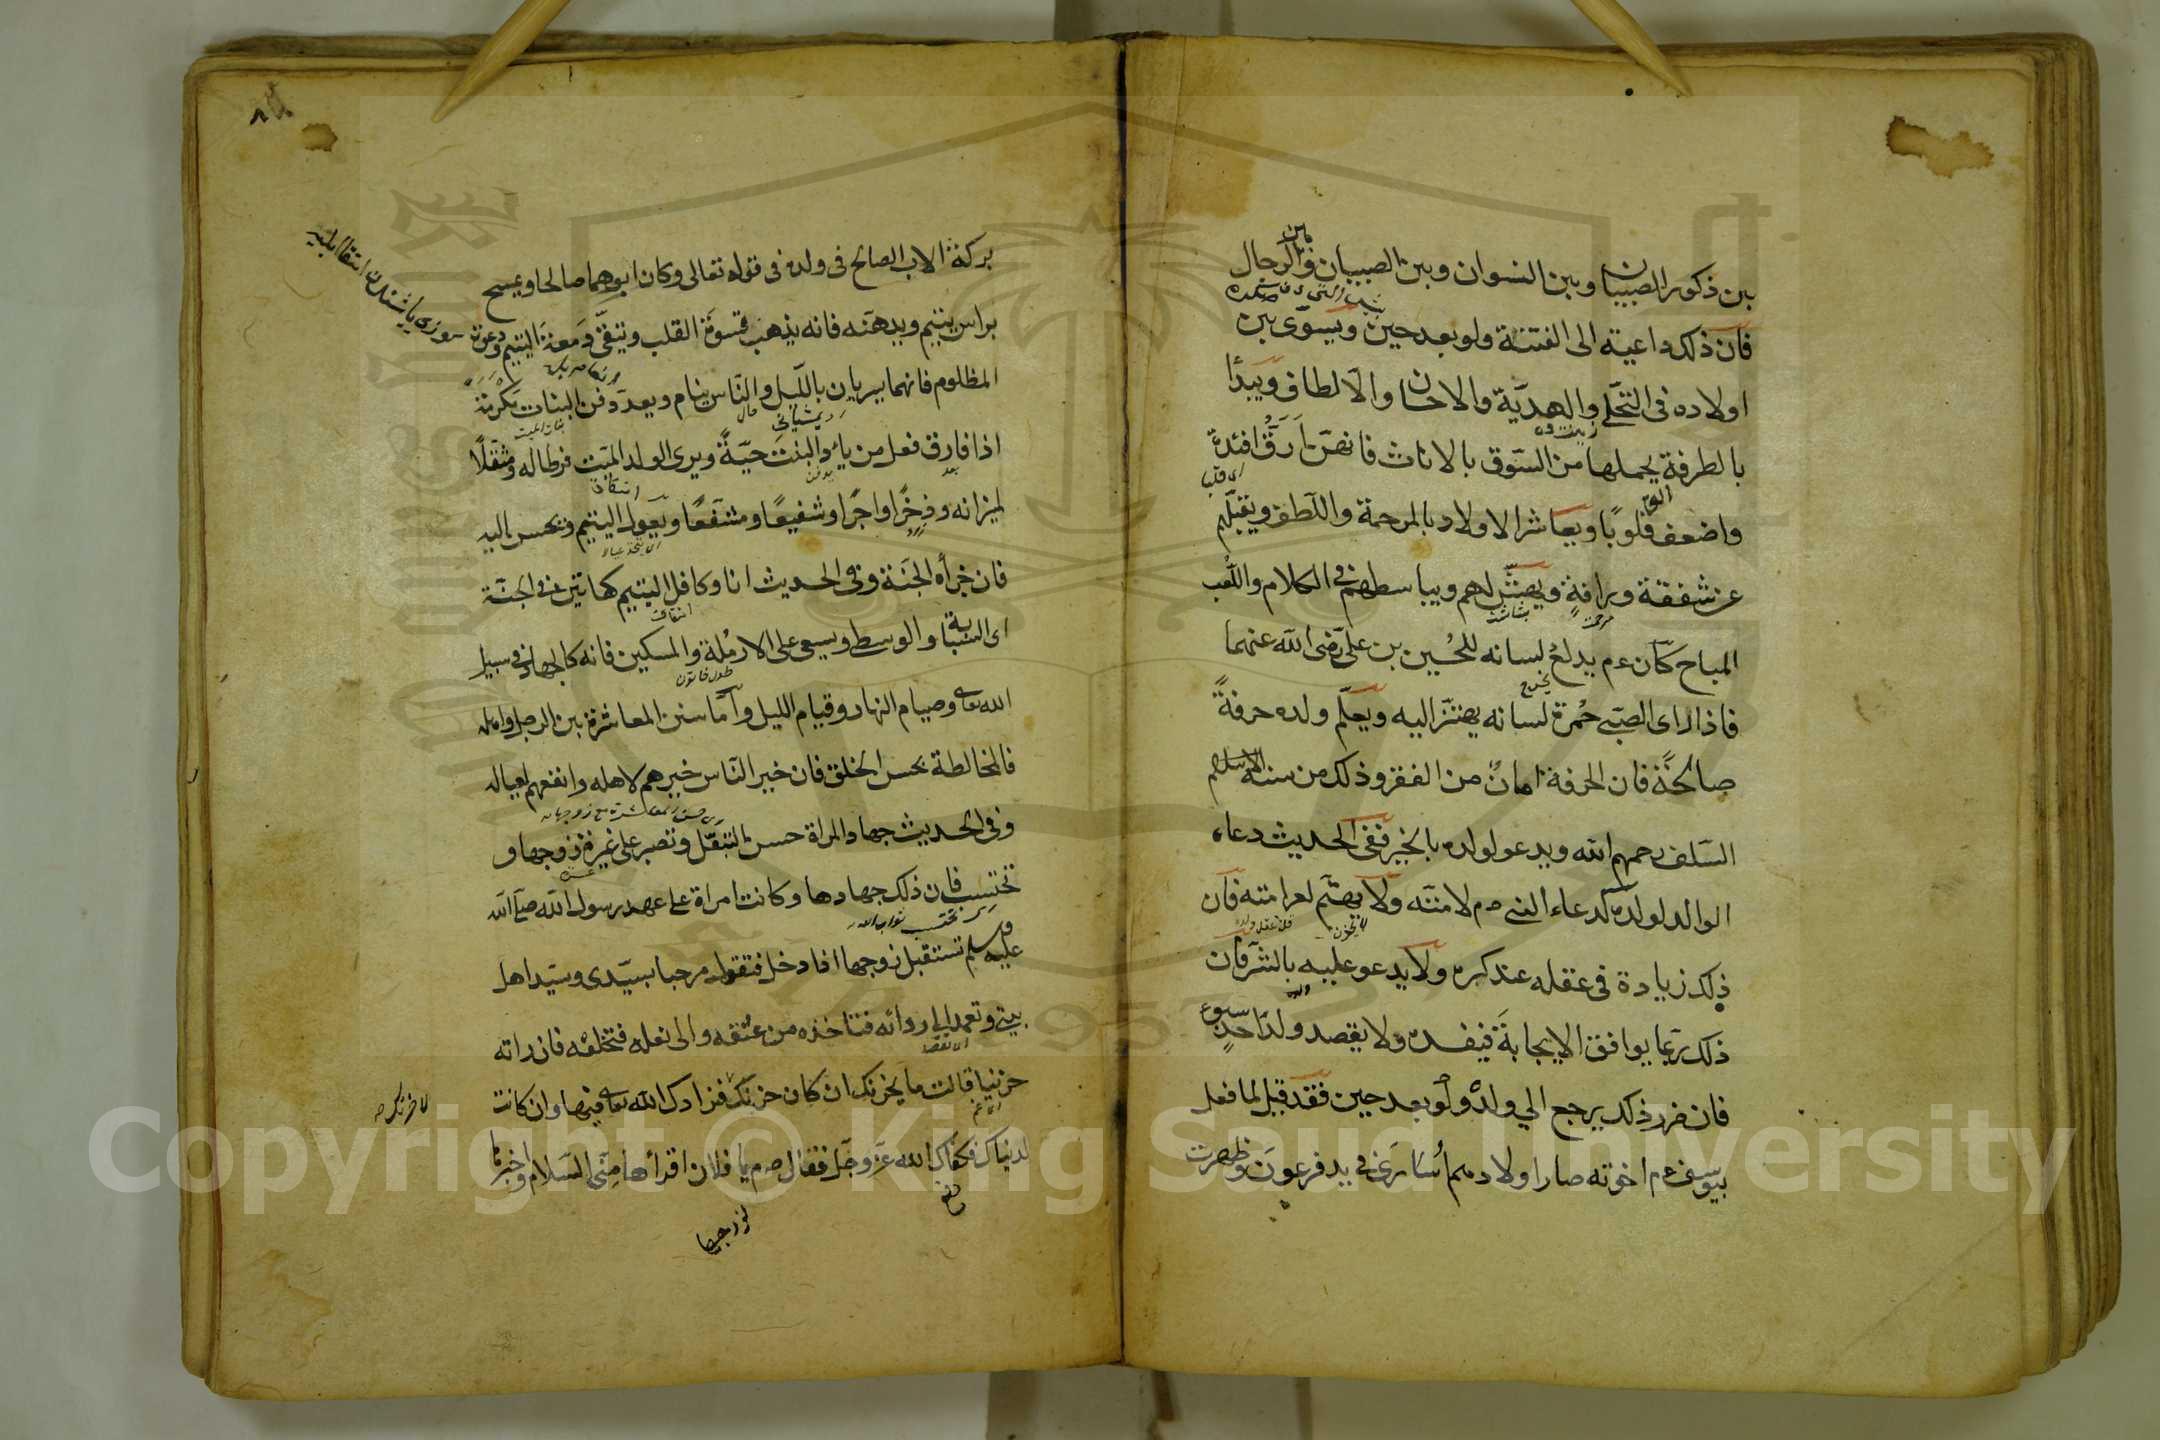 بين ذكور الصبيان وبين النسوان وبين الصبيان والرجال
فان ذلك داعية الى الفتنة ولو بعد حين ويسوّى بين
اولاده فى التحلى والهديّة والاحسان والالطاف ويبدأ
بالطرفة يحملها من السّوق بالاناث فانهنّ اَرَقُّ افئدة
واضعف قلوبًا ويعاشر الاولاد بالمرحمة واللّطف ويقبّلهم
عن شفقة وبرافةٍ ويهتشّ لهم ويباسطهم فى الكلام واللُّعب
المباح كان ءم يدلعُ لسانه للحُسين بن علىّ رضى الله عنهما
فاذا راى الصّبى حُمرة لسانه يهتزّ اليه ويعلّم ولده حرفةً
صالحةً فان الحرفة امانٌ من الفقر وذلك من سنة الاسلام
السّلف رحمهم الله ويدعو لولده بالخير ففى الحديث دعاء
الوالد لولده كدعاء النبى ءم لامته ولا يهتم لعرامته فان
ذلك زيادة فى عقله عند كبره ولا يدعو عليه بالشر فان
ذلك ربما يوافق الاجابة فيفسده ولا يقصد ولدَ احدٍ بسوء
فان ضرر ذلك يرجع الي ولده ولو بعد حين فقد قيل لما فعل
بيوسف ءم اخوته صار اولادهم أسارى فى يد فرعون وظهرت
بركة الاب الصالح فى ولده فى قوله تعالى وكان ابوهما صالحا ويمسح
براس يتيم ويدهنه فانه يذهب قسوة القلب ويتقى دمعة اليتيم ودعوة
المظلوم فانهما يسريان بالليل والنّاس ينام ويعدّ دفن البنات مكرمة
اذا فارق فعل من يائد البنتَ حيّةً ويرى الولد الميّت فرطا له ومثقلًا
لميزانه وذخرًا واجرًا وشفيعًا ومشفعًا ويعول اليتيم ويحسن اليه
فان جزاه الجنة وفى الحديث انا وكافل اليتيم كهاتين فى الجنّة
اى السّبابة والوسطى ويسعى على الارملة والمسكين فانه كالجهاد فى سبيل
الله تعالى وصيام النهار وقيام الليل وامّا سنن المعاشرة بين الرجل وامله
فالمخالطة بحسن الخلق فان خير النّاس خيرهم لاهله وانفعهم لعياله
وفى الحديث جهاد المراة حسن التبعّل وتصبر على غيرة زوجها و
تحتسب فان ذلك جهادها وكانت امراة على عهد رسول الله صلى الله
عليه وسلم تستقبل زوجها اذا دخل فتقول مرحبا بسيّدى وسيّد اهل
بيتى وتعمد الى ردائه فتاخذه من عنقه والى نعله فتخلعه فان راته
حزينا قالت ما يحزنك ان كان حزنك فزادك الله تعالى فيها وان كانت
لدنياك فكفاك الله عز وجل فقال ءم يا فلان اقراها منّى السّلام واخبرها
لزوجها